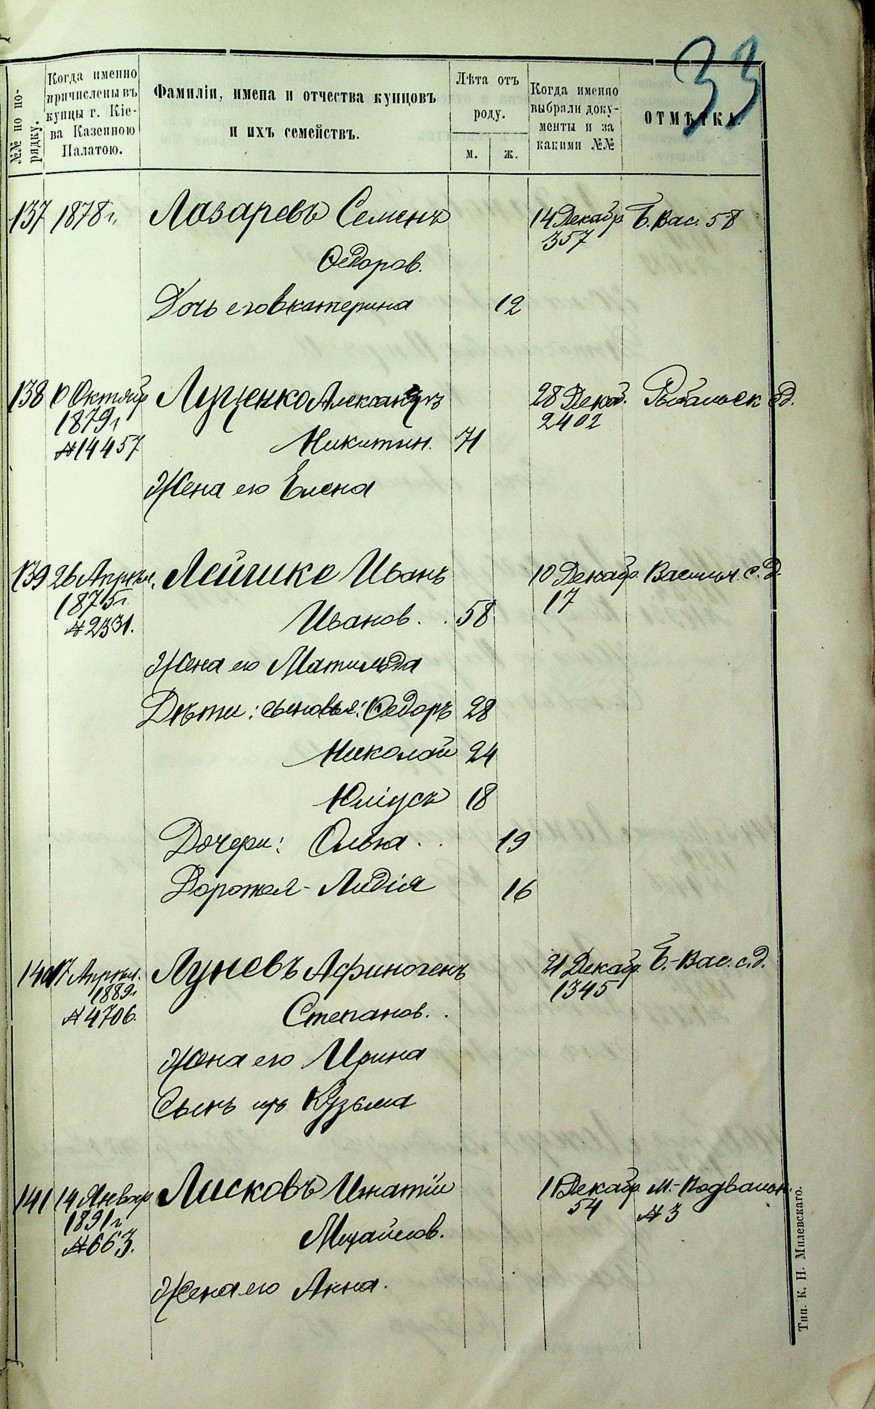 33
№№ по по-
рядку.
Когда именно
причислены въ
купцы г. Кіе-
ва Казенною
Палатою.
Фамиліи, имена и отчества купцовъ
и ихъ семействъ.
Лѣта отъ
роду.
м.
ж.
Когда именно
выбрали доку-
менты и за
какими №№
ОТМѢТКА
137 1878 г. Лазаревъ Семенъ 14 Декабр. Б. Вас. 58
357
Ѳедоров.
Дочь его Екатерина 12
138 10 Октябр Луценко Александръ 28 Декаб. Рыбальск
1879 г. 2402
№14457 Никитин. 71
Жена его Елена
139 26 Апрѣл. Лейшке Иванъ 10 Декабр Васильк. с. д.
1875 г. 17
№2331. Иванов. 58
Жена его Матильда
Дѣти: сыновья: Ѳедоръ 28
Николай 24
Юліусъ 18
Дочери: Ольга 19
Доротея-Лидія 16
140 17 Апрѣл. Луневъ Афиногенъ 21 Декабр Б.-Вас. с. д.
1889 г. 1345
№4706. Степанов.
Жена его Ирина
Сынъ ихъ Кузьма
141 14 Январ Лисковъ Игнатій 11 Декабр М.-Подвальн.
1891 г. 54 №3
№663. Михайлов.
Жена его Анна.
Тип. К. Н. Милевскаго.